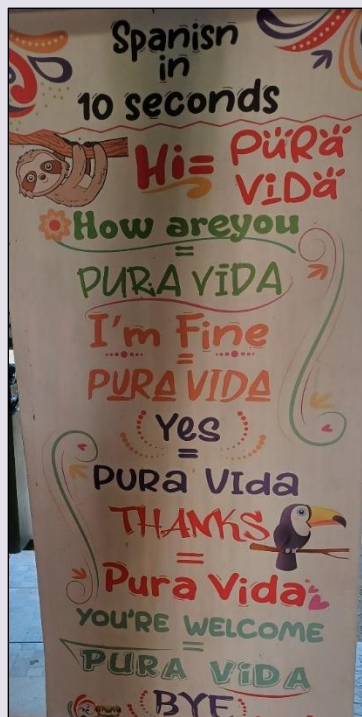 Spanisn
in
10 seconds
Hi= PURa
ViDa
How areyou
=
PURA VIDA
I'm Fine
=
PURA VIDA
Yes
=
PURa VIda
THANKS
=
Pura Vida
YOU'RE WELCOME
=
PURA ViDA
BYE